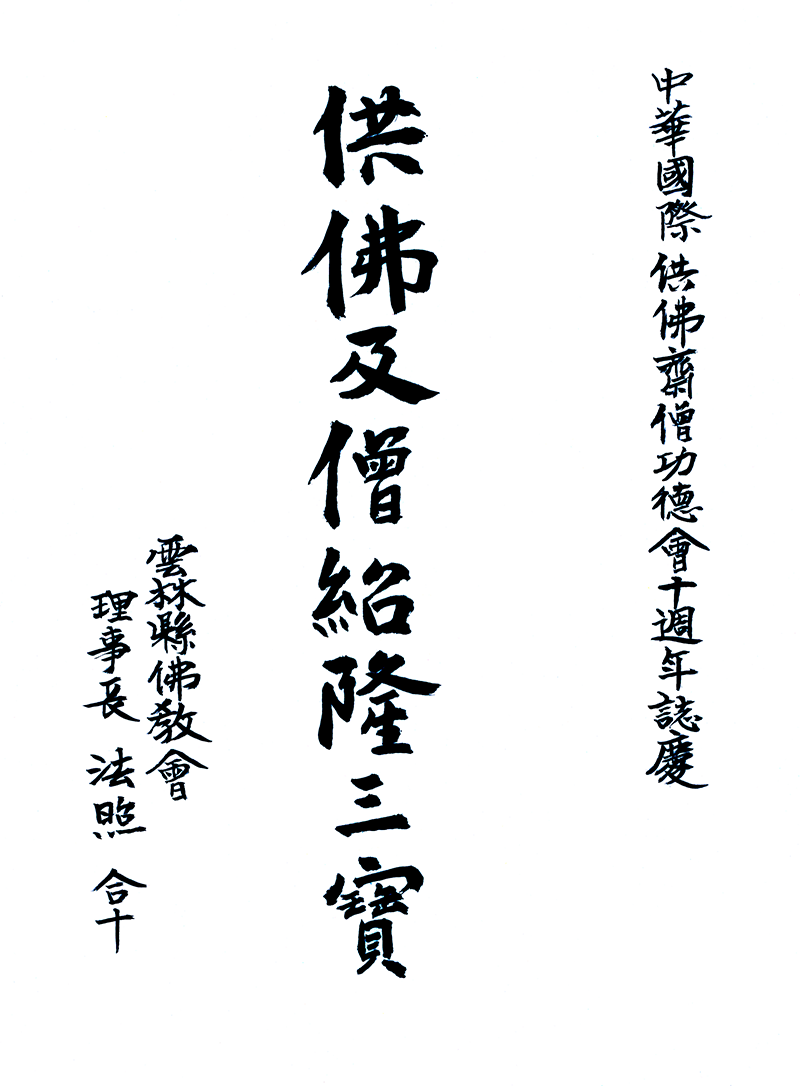 中華國際供佛齋僧功德會十週年誌慶
供佛及僧紹隆三寶
雲林縣佛教會
理事長 法照 合十